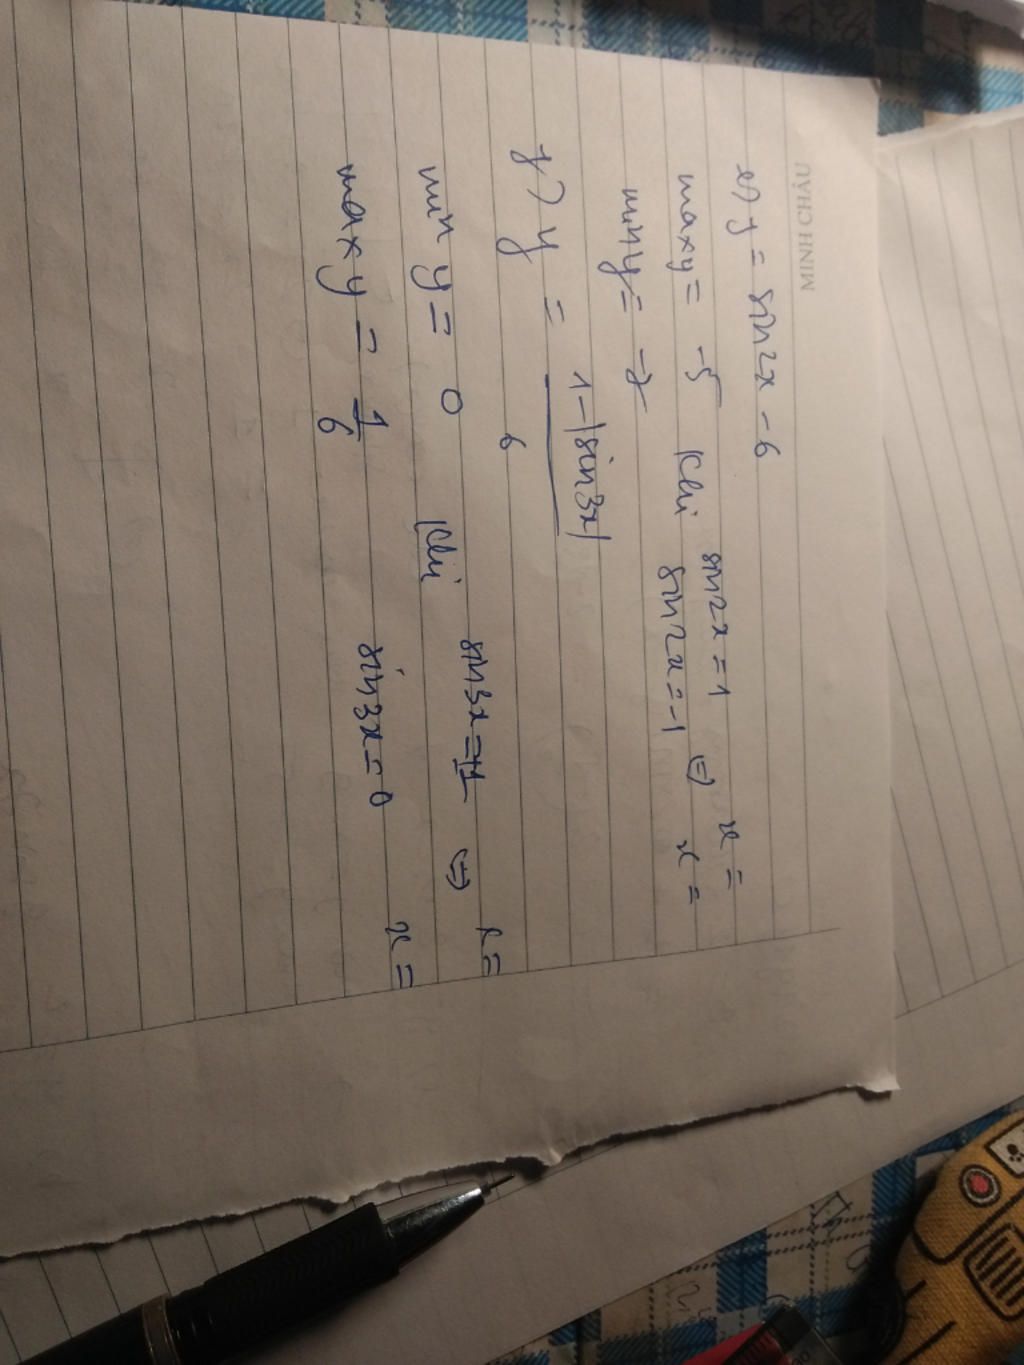 MINH CHÂU
e) y = sin2x - 6
max y = -5 khi sin2x = 1 x =
min y = -7 sin2x = -1 ⇔ x =
f) y = \frac{1-|sin3x|}{6}
min y = 0 khi sin3x = ±1 ⇔ x =
max y = \frac{1}{6} sin3x = 0 x =